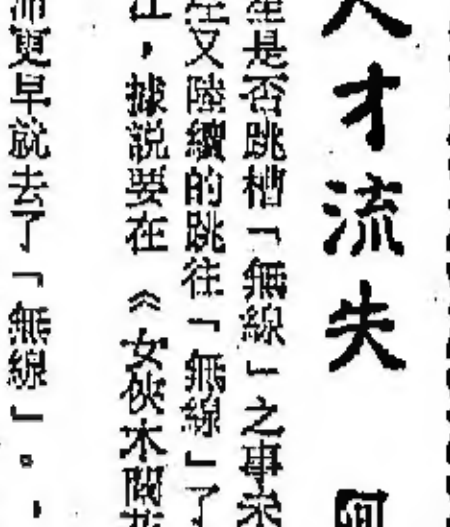 人才流失 阿
是否跳槽「無線」之事未
又陸續的跳往「無線」了
江，據說要在《女俠木蘭花
沛更早就去了「無線」。，